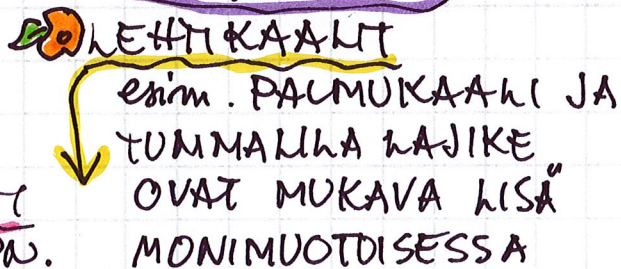 LEHTIKAALIT
esim. PALMUKAALI JA
TUMMALILA LAJIKE
OVAT MUKAVA LISÄ
MONIMUOTOISESSA